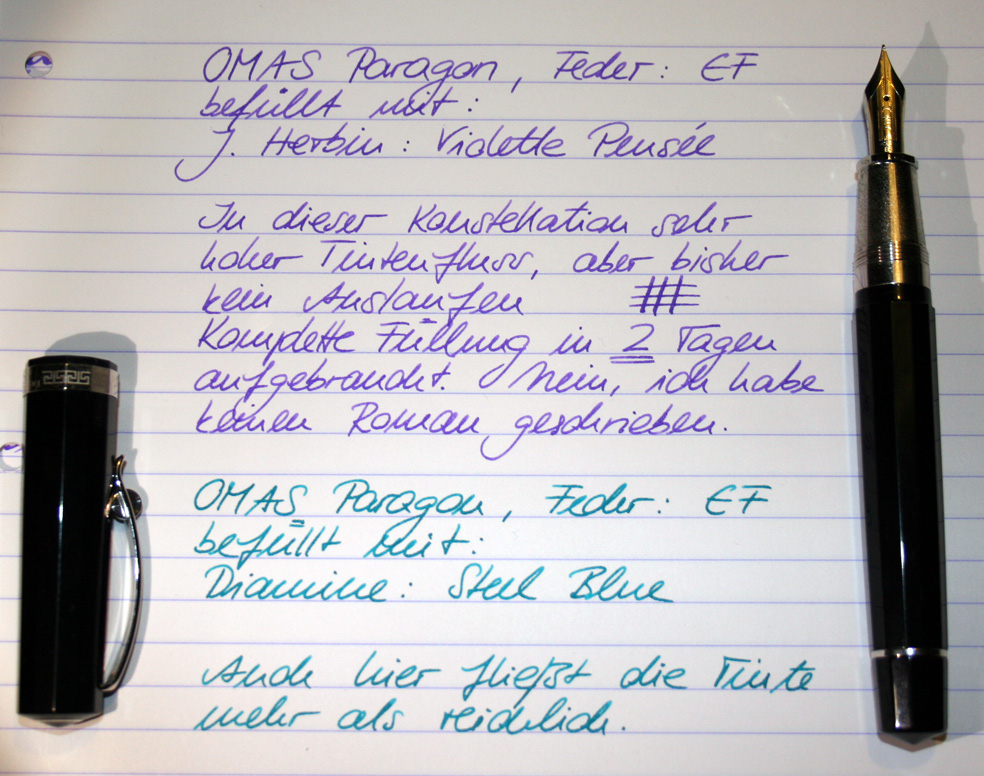 OMAS Paragon, Feder: EF
befüllt mit:
J. Herbin: Violette Pensée
In dieser Konstellation sehr
hoher Tintenfluss, aber bisher
kein Auslaufen
Komplette Füllung in 2 Tagen
aufgebraucht. Nein, ich habe
keinen Roman geschrieben.
OMAS Paragon, Feder: EF
befüllt mit:
Diamine: Steel Blue
Auch hier fließt die Tinte
mehr als reichlich.